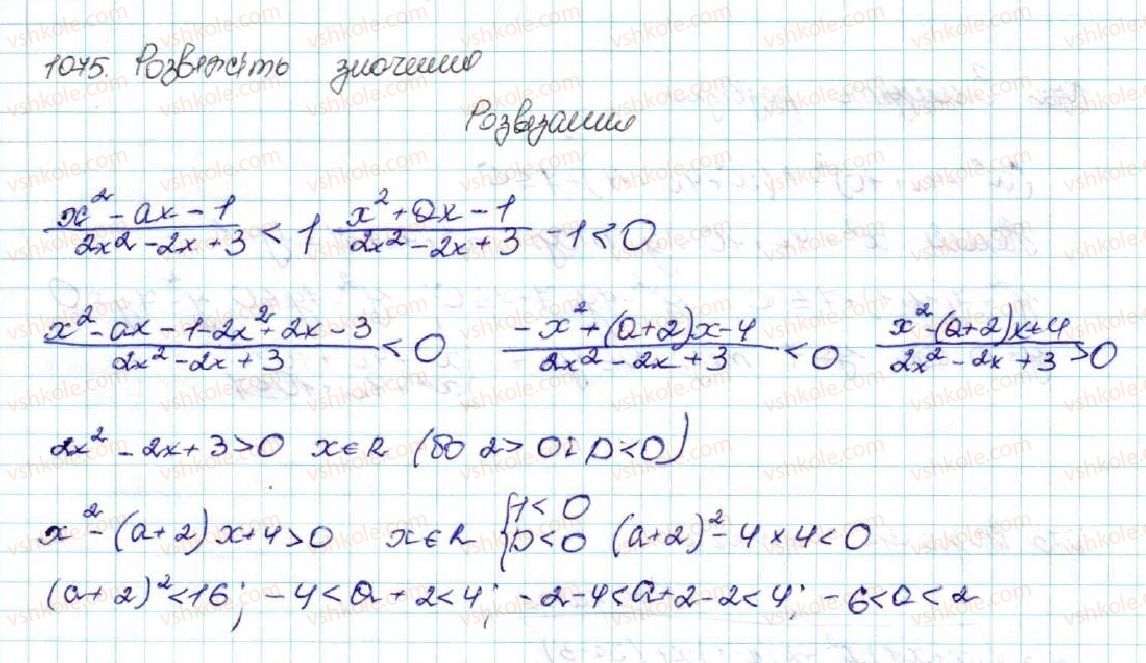 1075. Розвяжіть значення
Розвязання
(x² - ax - 1)/(2x² - 2x + 3) < 1 (x² + ax - 1)/(2x² - 2x + 3) - 1 < 0
(x² - ax - 1 - 2x² + 2x - 3)/(2x² - 2x + 3) < 0 (-x² + (a+2)x - 4)/(2x² - 2x + 3) < 0 (x² - (a+2)x + 4)/(2x² - 2x + 3) > 0
2x² - 2x + 3 > 0 x ∈ R (бо 2 > 0 і D < 0)
x² - (a+2)x + 4 > 0 x ∈ R { 1 < 0 D < 0 (a+2)² - 4 × 4 < 0
(a+2)² < 16; -4 < a + 2 < 4; -2 - 4 < a + 2 - 2 < 4; -6 < a < 2